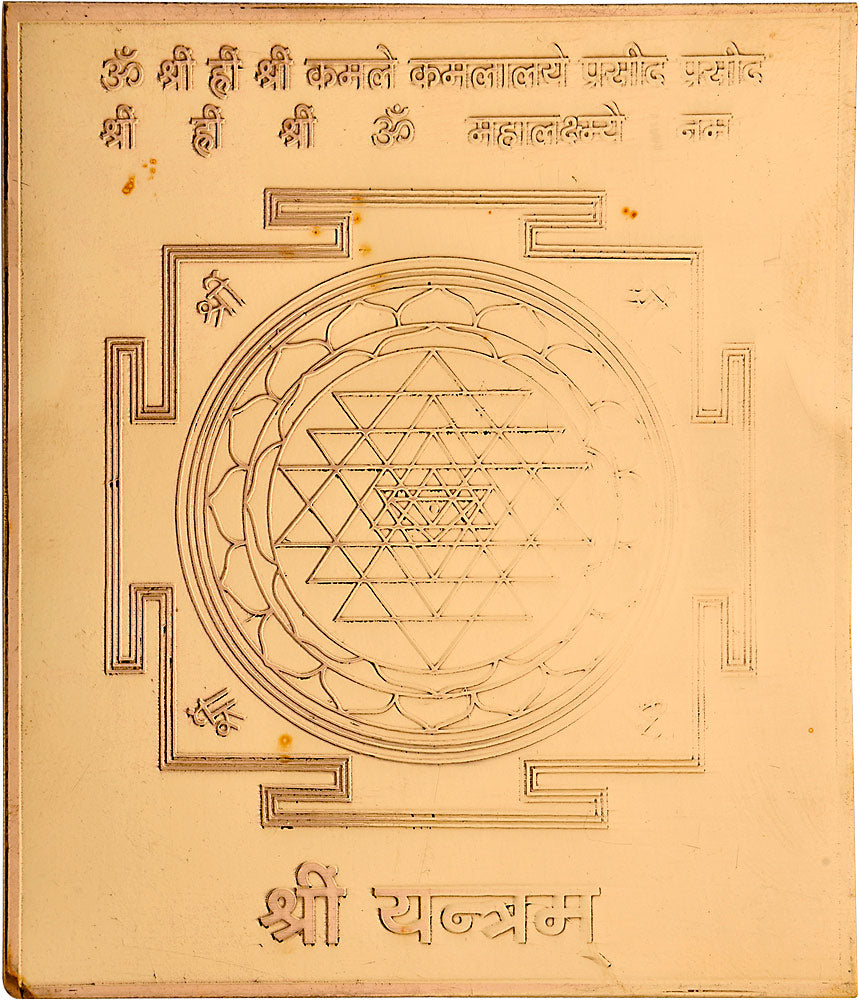 ॐ श्रीं ह्रीं श्रीं कमले कमलालये प्रसीद प्रसीद
श्रीं ह्रीं श्रीं ॐ महालक्ष्म्यै नम
श्रीं
श्रीं यन्त्रम